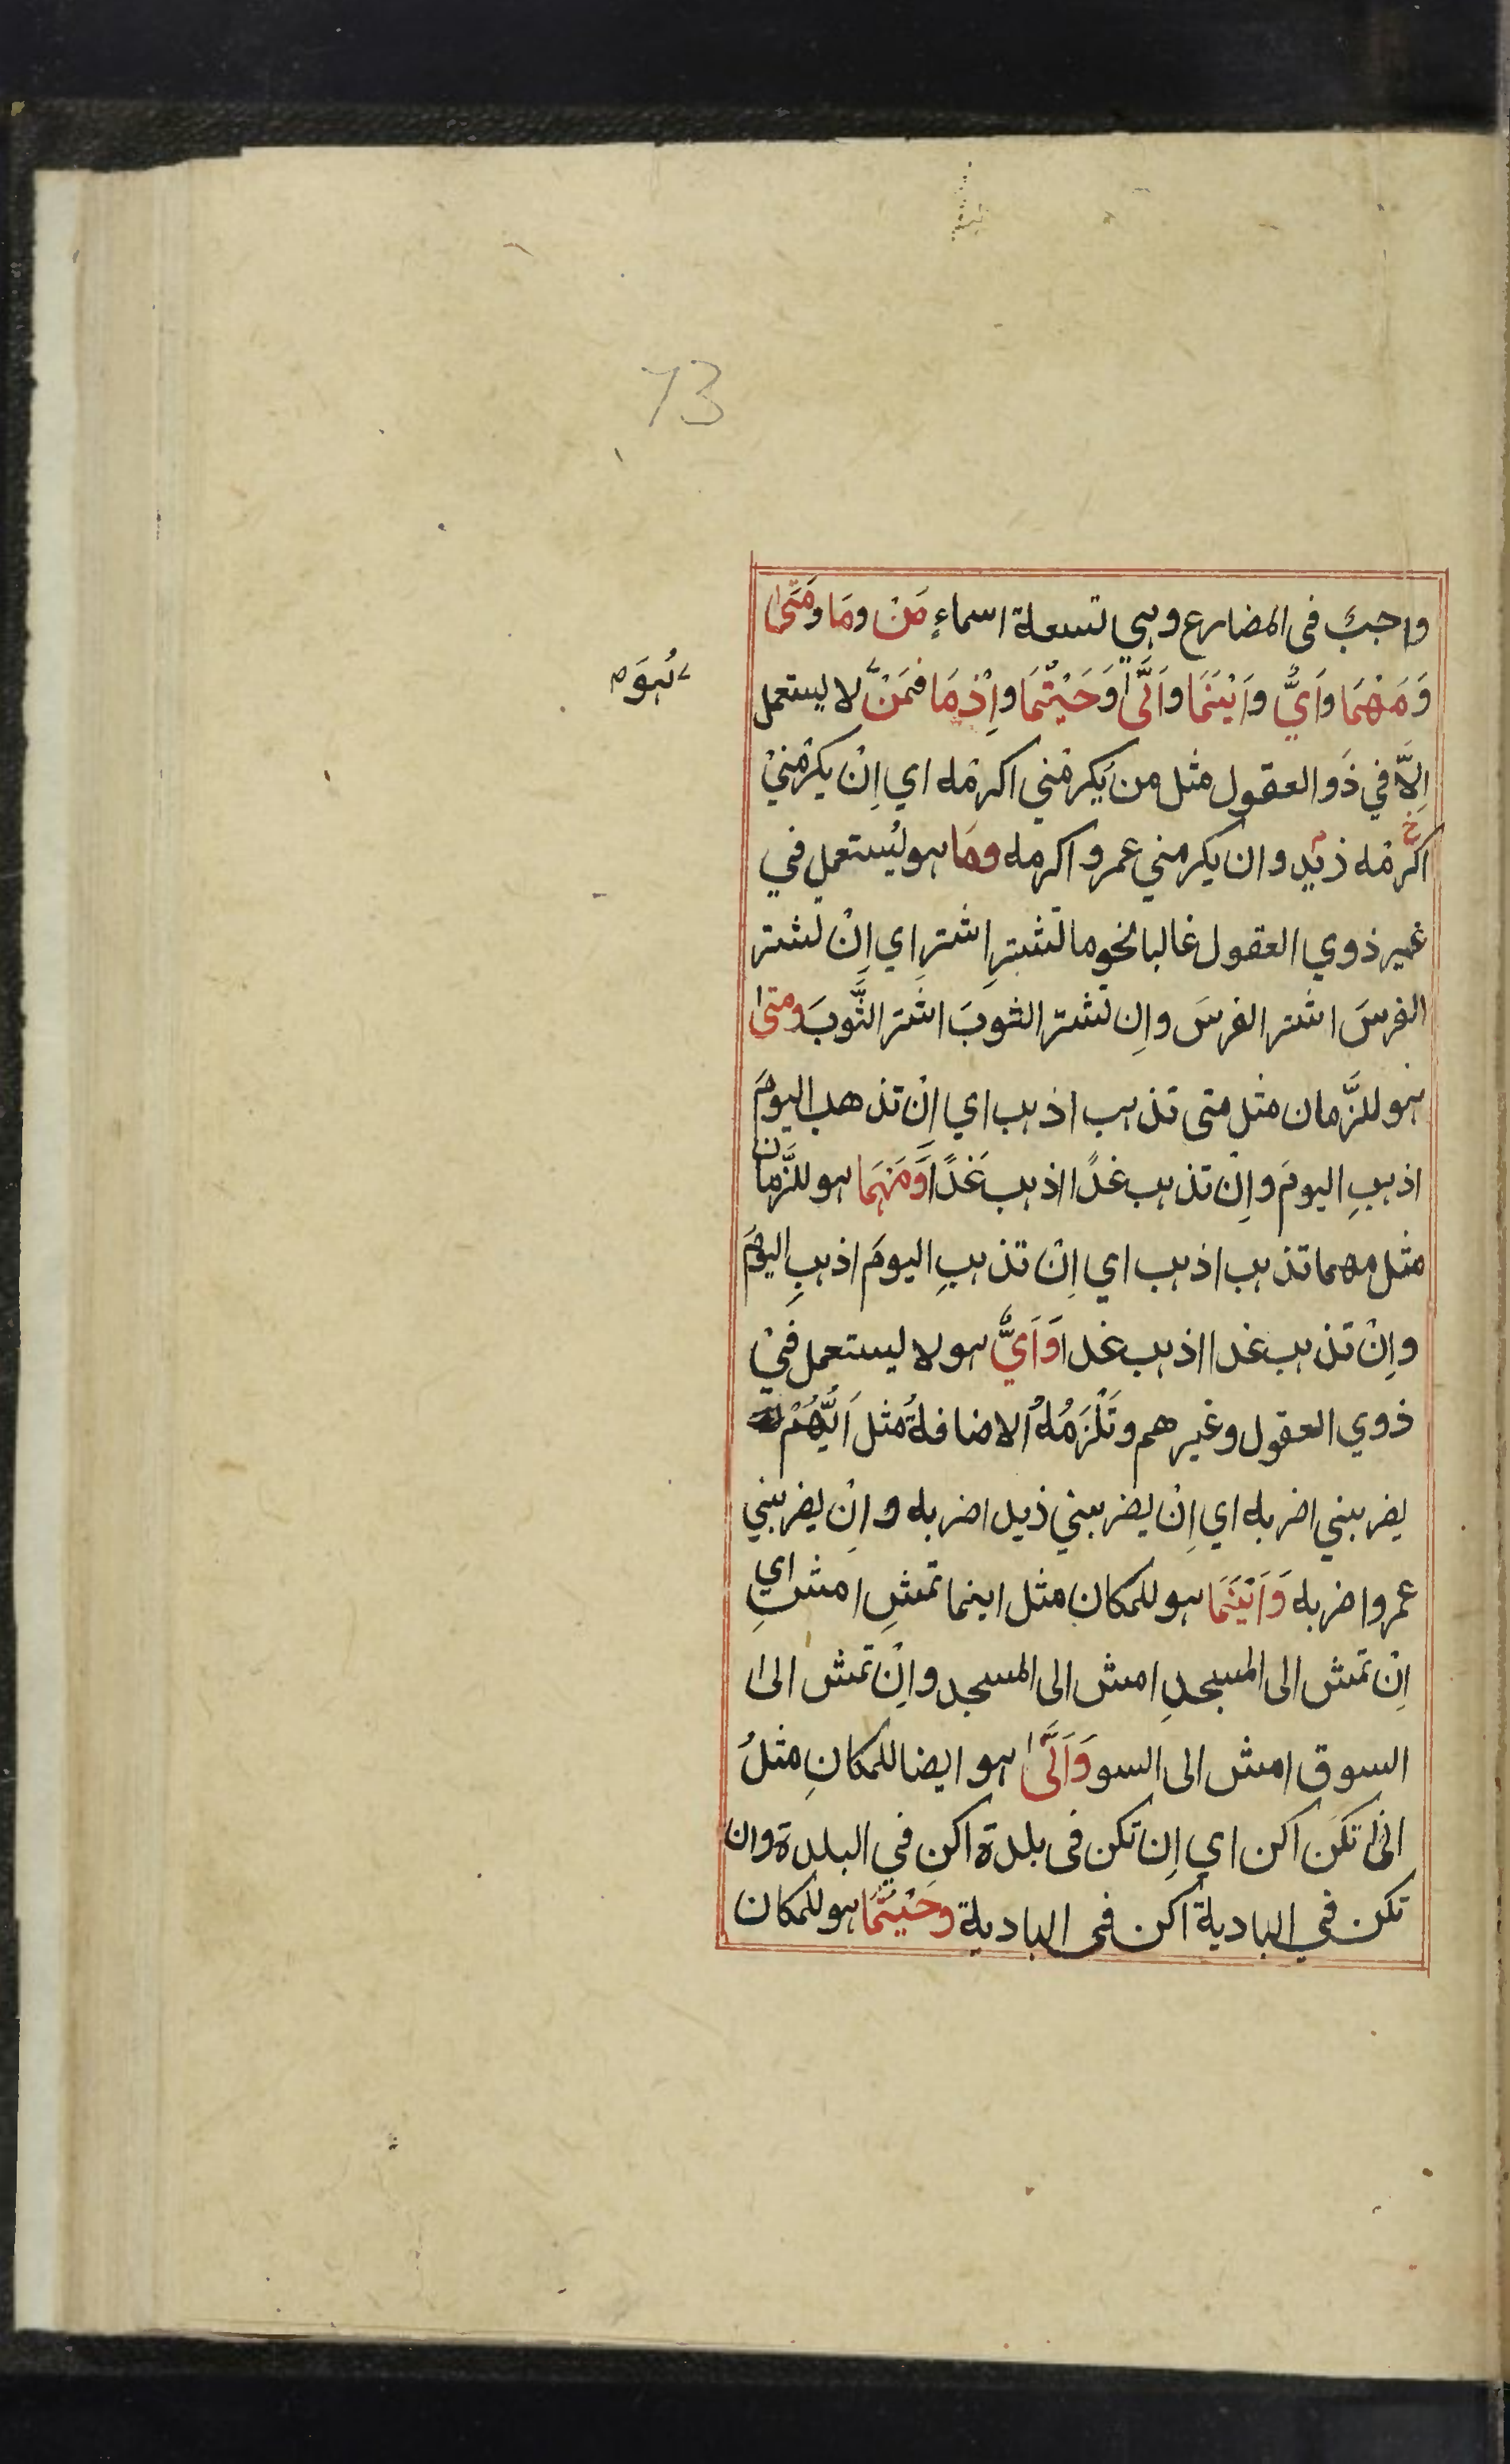 73
واجبٌ فى المضارع وهي تسعة اسماءٍ مَنْ ومَا ومَتىٰ
وَمَهْمَا وَاَيٌّ وَاَيْنَمَا وَاَنّٰى وَحَيْثُمَا وَاِذْمَا فمَنْ لا يستعمل
فهُوَ
اِلَّا في ذَو العقول مثل من يكرمْني اكرمْه اي اِنْ يكرمْنِيْ
اكرمْه زيدٍ وان يكرمني عمرو اكرمه ومَا هو ليُستعمل في
غير ذوي العقول غالبا نحو ما تشترِ اشترِ اي اِنْ تشتر
الفرسَ اشتر الفرسَ واِن تشتر الثوبَ اشتر الثَّوبَ ومتىٰ
هو للزَّمان مثل متى تذهب اذهب اي اِنْ تذهب اليومَ
اذهبِ اليومَ واِنْ تذهب غدًا اذهب غَدًا وَمَهمَا هو للزَّمان
مثل مهما تذهب اذهب اي اِنْ تذهبِ اليومَ اذهبِ اليومَ
واِنْ تذهب غدا اذهب غدا وَاَيٌّ هو لا يستعمل فِيْ
ذوي العقول وغيرهم وتَلْزَمُهُ الاضافةُ مثل اَيُّهُمْ
يضربني اضربه اي اِنْ يضربني ذيد اضربه واِنْ يضربني
عمرو اضربه وَاَيْنَمَا هو للمكان مثل اينما تمشِ امشِ اي
اِنْ تمش الى المسجدِ امش الى المسجد واِنْ تمش الىٰ
السوق امش الى السو وَاَنّٰى هو ايضا للمكانِ مثلُ
انىٰ تكن اكن اي اِن تكن فى بلدة اكن في البلدة وان
تكن في البادية اكن فى البادية وحَيْثُمَا هو للمكان